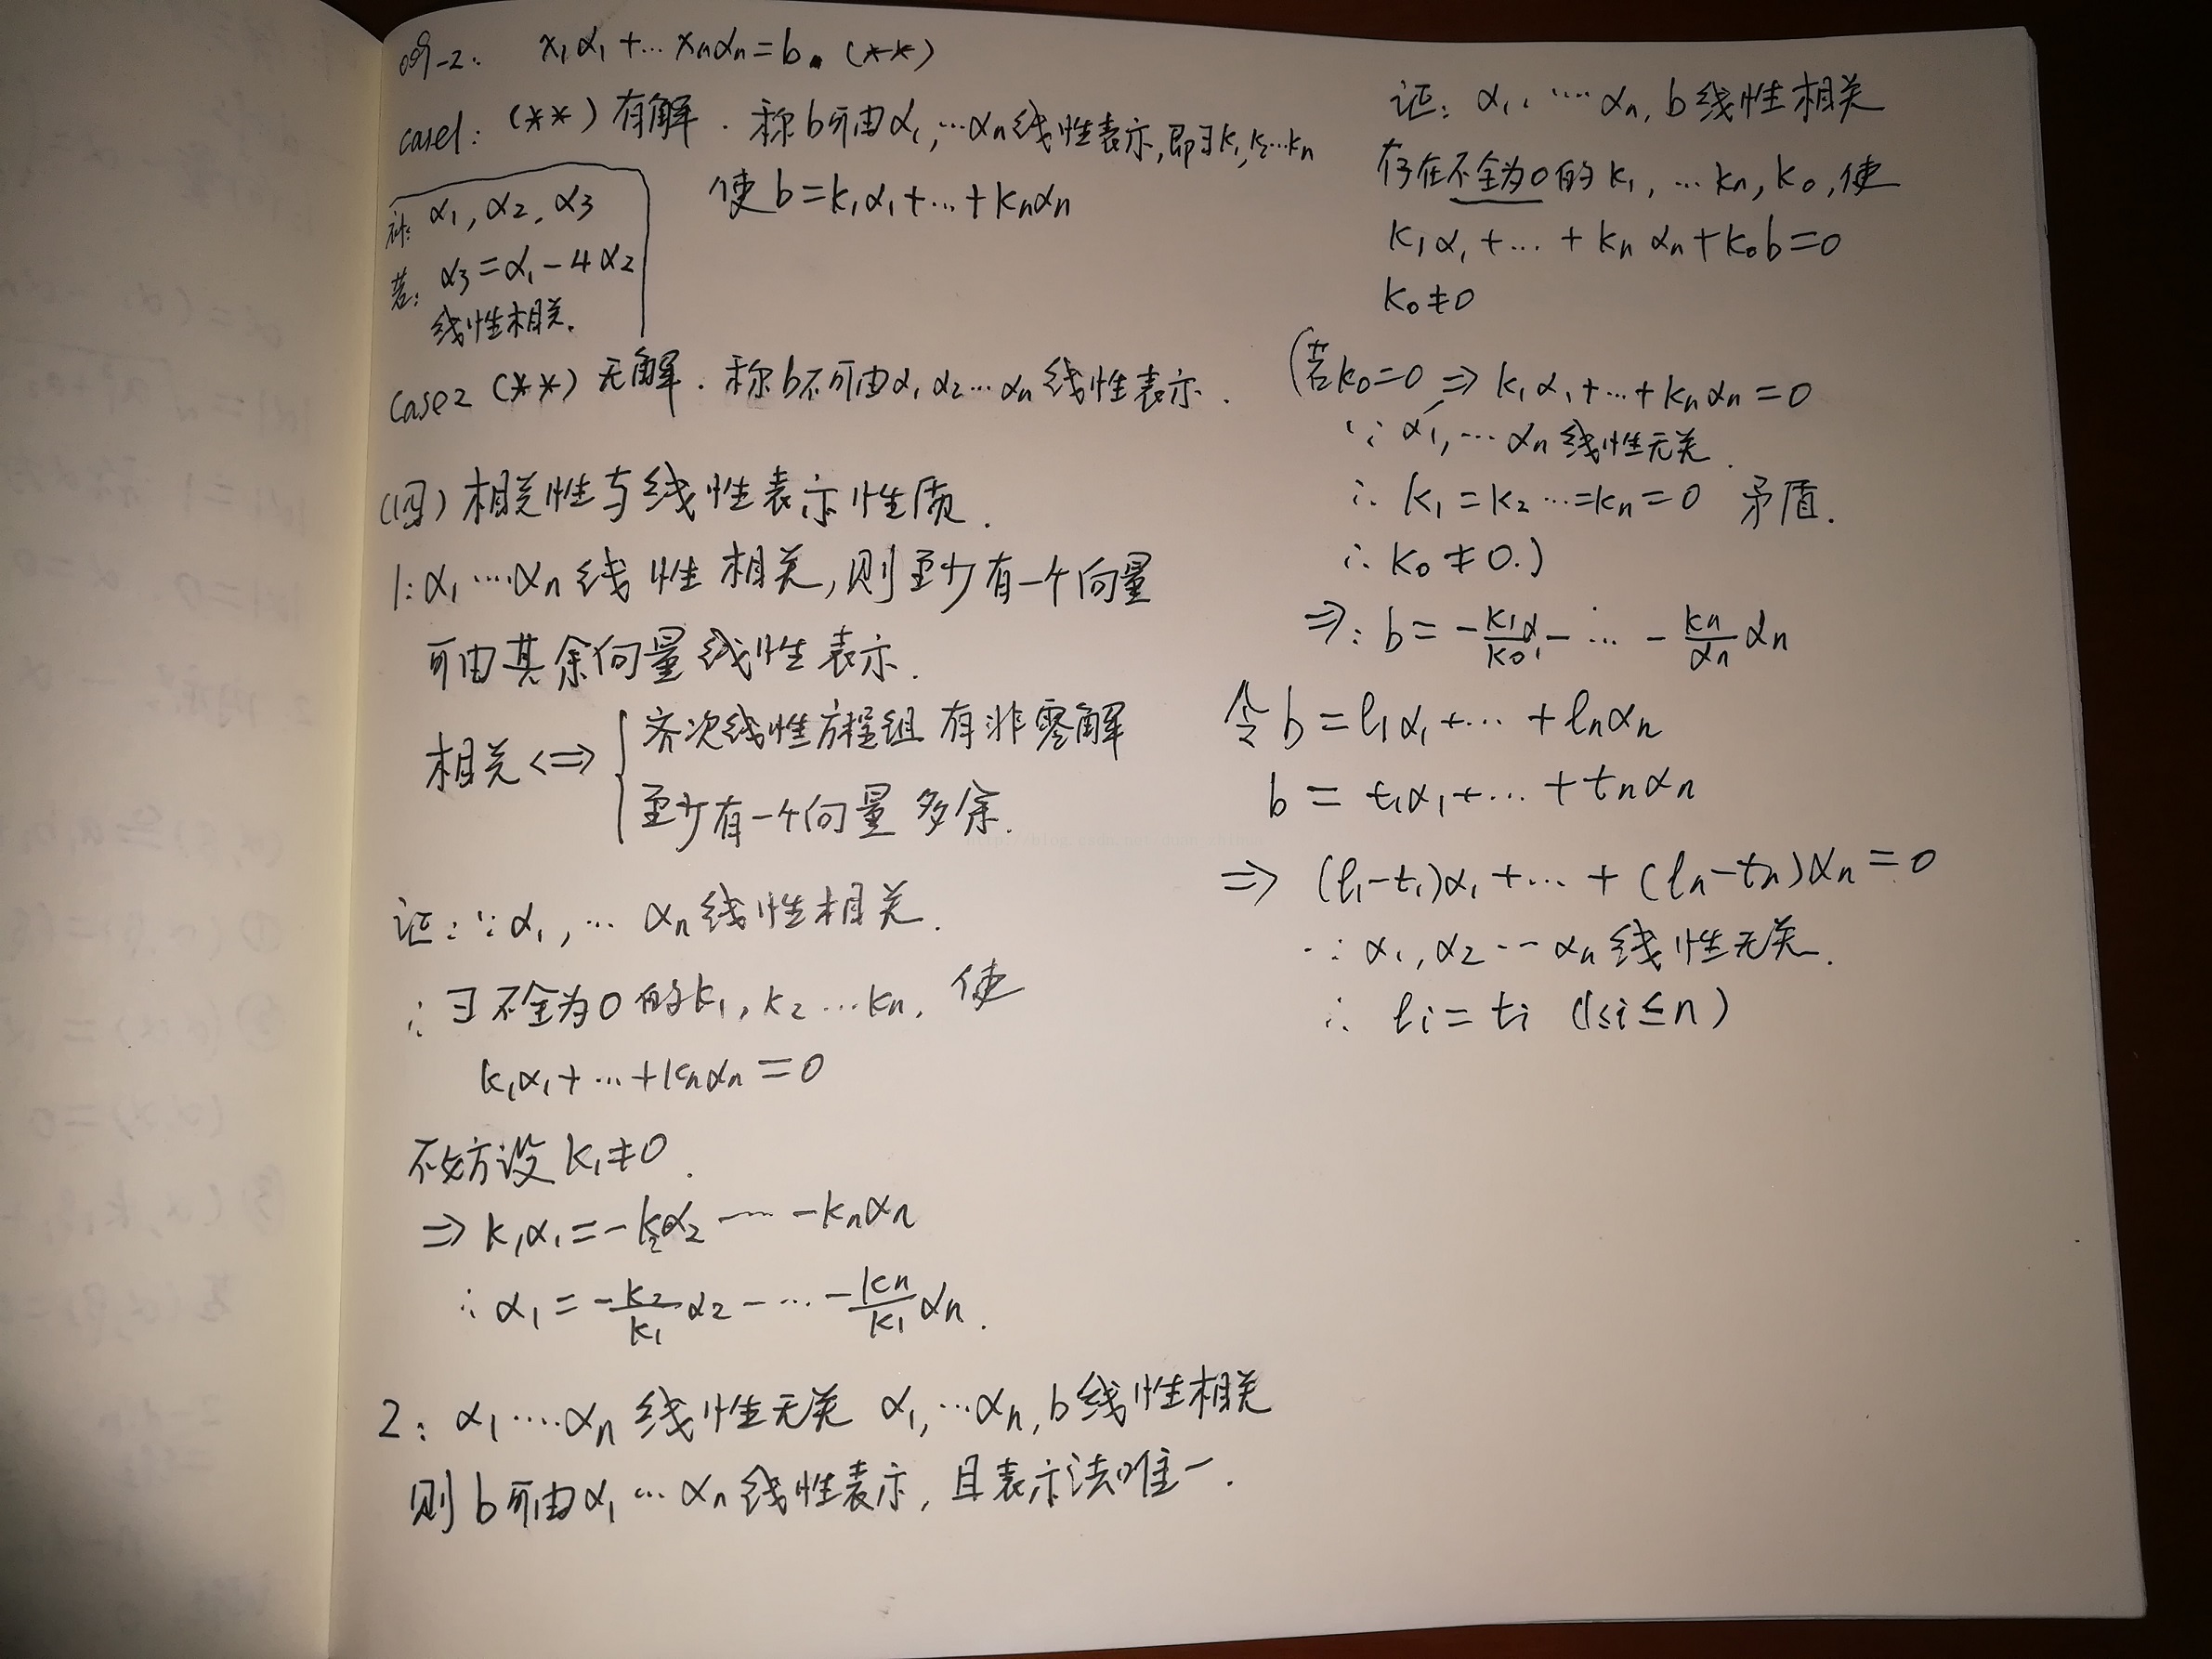 例-2: x₁α₁+…xₙαₙ=b. (**)
case1: (**)有解. 称b可由α₁,…αₙ线性表示,即∃k₁,k₂…kₙ
使b=k₁α₁+…+kₙαₙ
补: α₁,α₂,α₃
若: α₃=α₁-4α₂
线性相关.
case2 (**)无解. 称b不可由α₁α₂…αₙ线性表示.
(四)相关性与线性表示性质.
1:α₁…αₙ线性相关,则至少有一个向量
可由其余向量线性表示.
相关<=>{齐次线性方程组有非零解
至少有一个向量多余.
证:∵α₁,…αₙ线性相关.
∴∃不全为0的k₁,k₂…kₙ,使
k₁α₁+…+kₙαₙ=0
不妨设k₁≠0.
⇒k₁α₁=-k₂α₂-…-kₙαₙ
∴α₁=-k₂/k₁α₂-…-kₙ/k₁αₙ.
2:α₁…αₙ线性无关 α₁,…αₙ,b线性相关
则b可由α₁…αₙ线性表示,且表示法唯一.
证:α₁,…αₙ,b线性相关
存在不全为0的k₁,…kₙ,k₀,使
k₁α₁+…+kₙαₙ+k₀b=0
k₀≠0
(若k₀=0⇒k₁α₁+…+kₙαₙ=0
∵α₁,…αₙ线性无关.
∴k₁=k₂…=kₙ=0 矛盾.
∴k₀≠0.)
⇒:b=-k₁α₁/k₀-…-kₙ/αₙαₙ
令b=l₁α₁+…+lₙαₙ
b=t₁α₁+…+tₙαₙ
⇒(l₁-t₁)α₁+…+(lₙ-tₙ)αₙ=0
∵α₁,α₂…αₙ线性无关.
∴lᵢ=tᵢ (1≤i≤n)